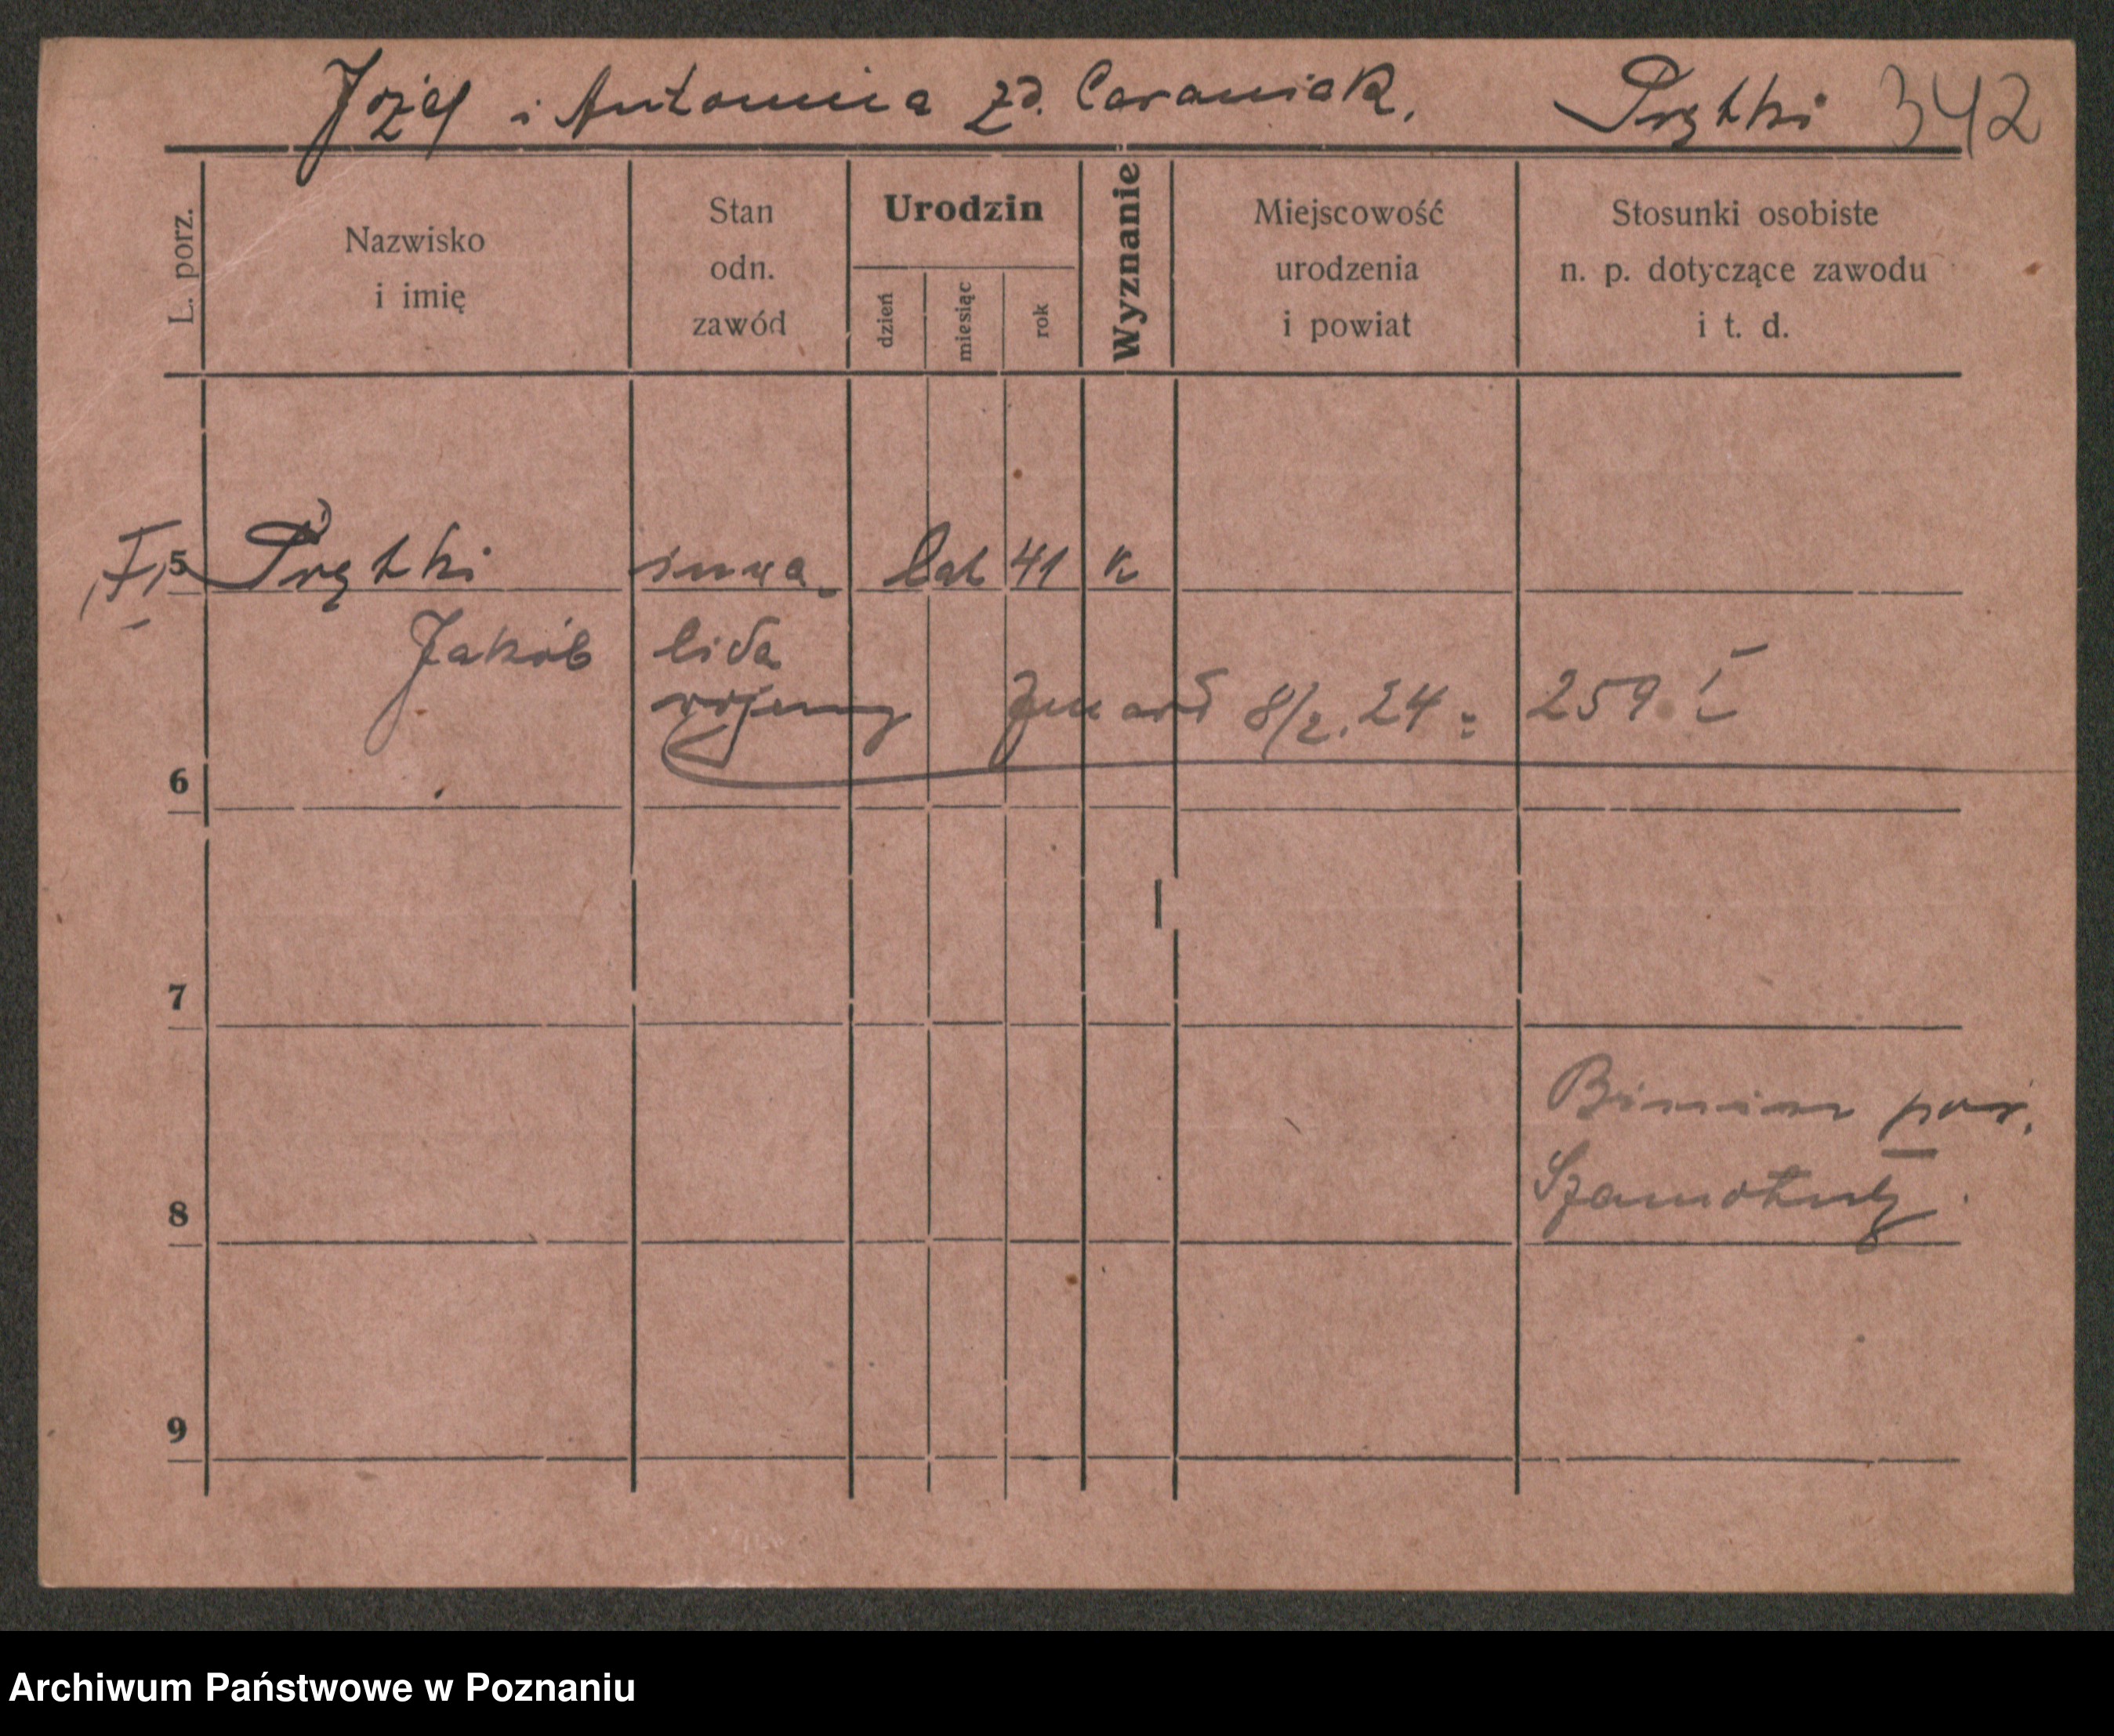 Józef i Antonina zd. Caraniak, Prętki 342
L. porz.
Nazwisko
i imię
Stan
odn.
zawód
Urodzin
dzień
miesiąc
rok
Wyznanie
Miejscowość
urodzenia
i powiat
Stosunki osobiste
n. p. dotyczące zawodu
i t. d.
5 Prętki inwa- lat 41 k
Jakób lida
wojenny zmarł 8/2.24 : 259 I
6
7
pow.
8 Szamotuły.
9
Archiwum Państwowe w Poznaniu